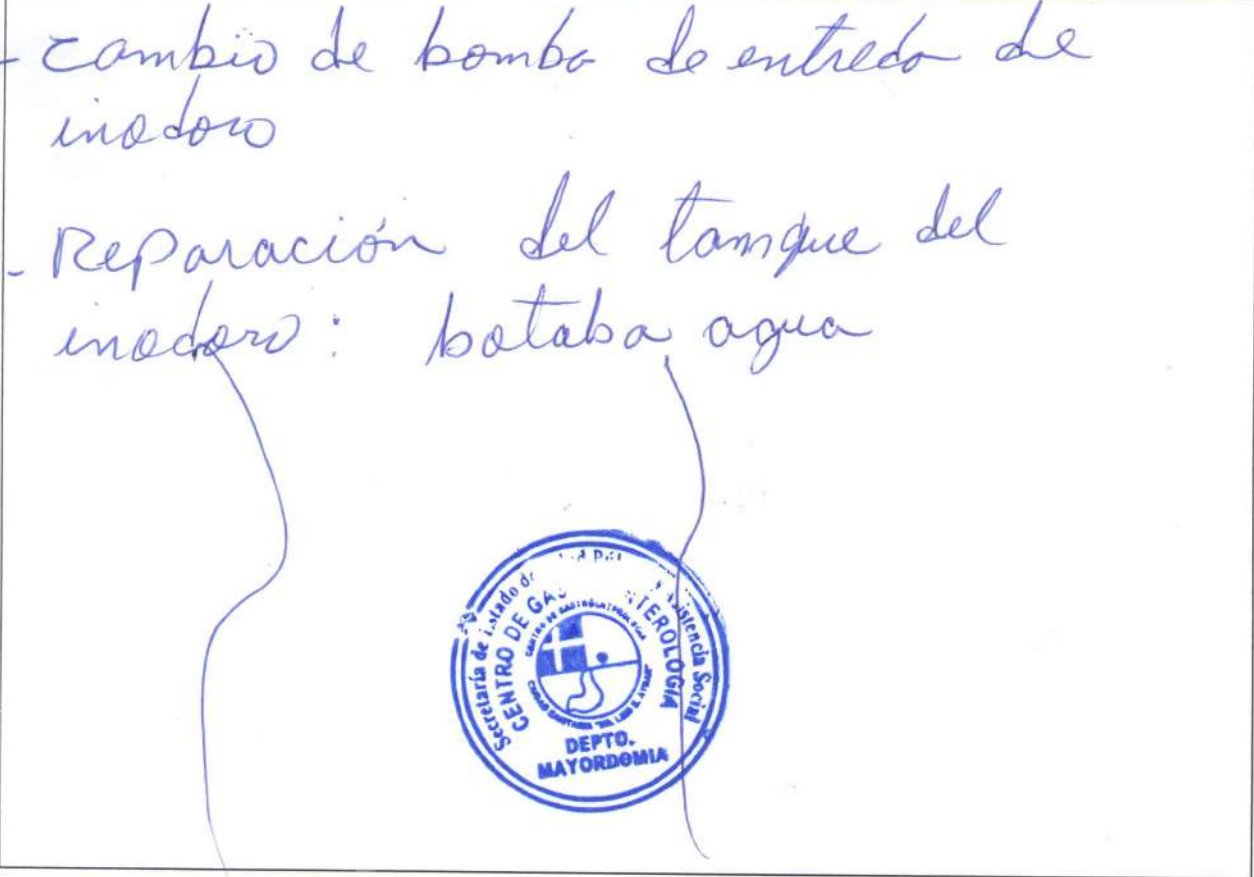 - cambio de bomba de entrada de
inodoro
- Reparación del tamque del
inodoro: botaba agua
Secretaría de Estado de Asistencia Social
CENTRO DE GAS TEROLOGIA
CENTRO DE GASTROENTEROLOGIA
DEPTO.
MAYORDOMIA